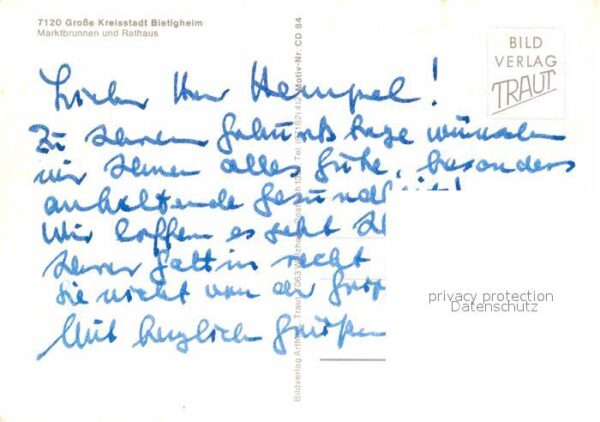 7120 Große Kreisstadt Bietigheim
Marktbrunnen und Rathaus
BILD
VERLAG
TRAUT
Motiv-Nr. CD 84
Bildverlag Arth. Traut, 7063 Welzheim, Postfach 13, Tel. (07182) 412
Lieber Herr Hempel!
Zu Ihrem Geburtstage wünschen
wir Ihnen alles Gute, besonders
anhaltende Gesundheit!
Wir hoffen es geht
Ihrer Gattin recht
Sie nicht von der
Mit herzlich Grüßen
privacy protection
Datenschutz